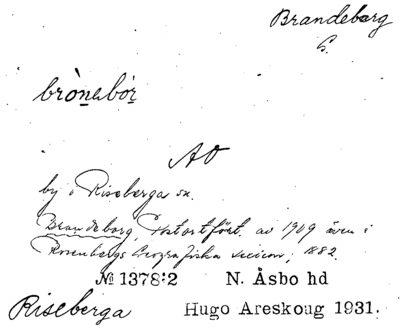 Brandeborg
G.
brònabór
AO
by i Riseberga sn.
Brandeborg, Postortfört. av 1909 även i
Rosenbergs Geografiska Lexicon, 1882.
№ 1378:2 N. Åsbo hd
Riseberga Hugo Areskoug 1931.